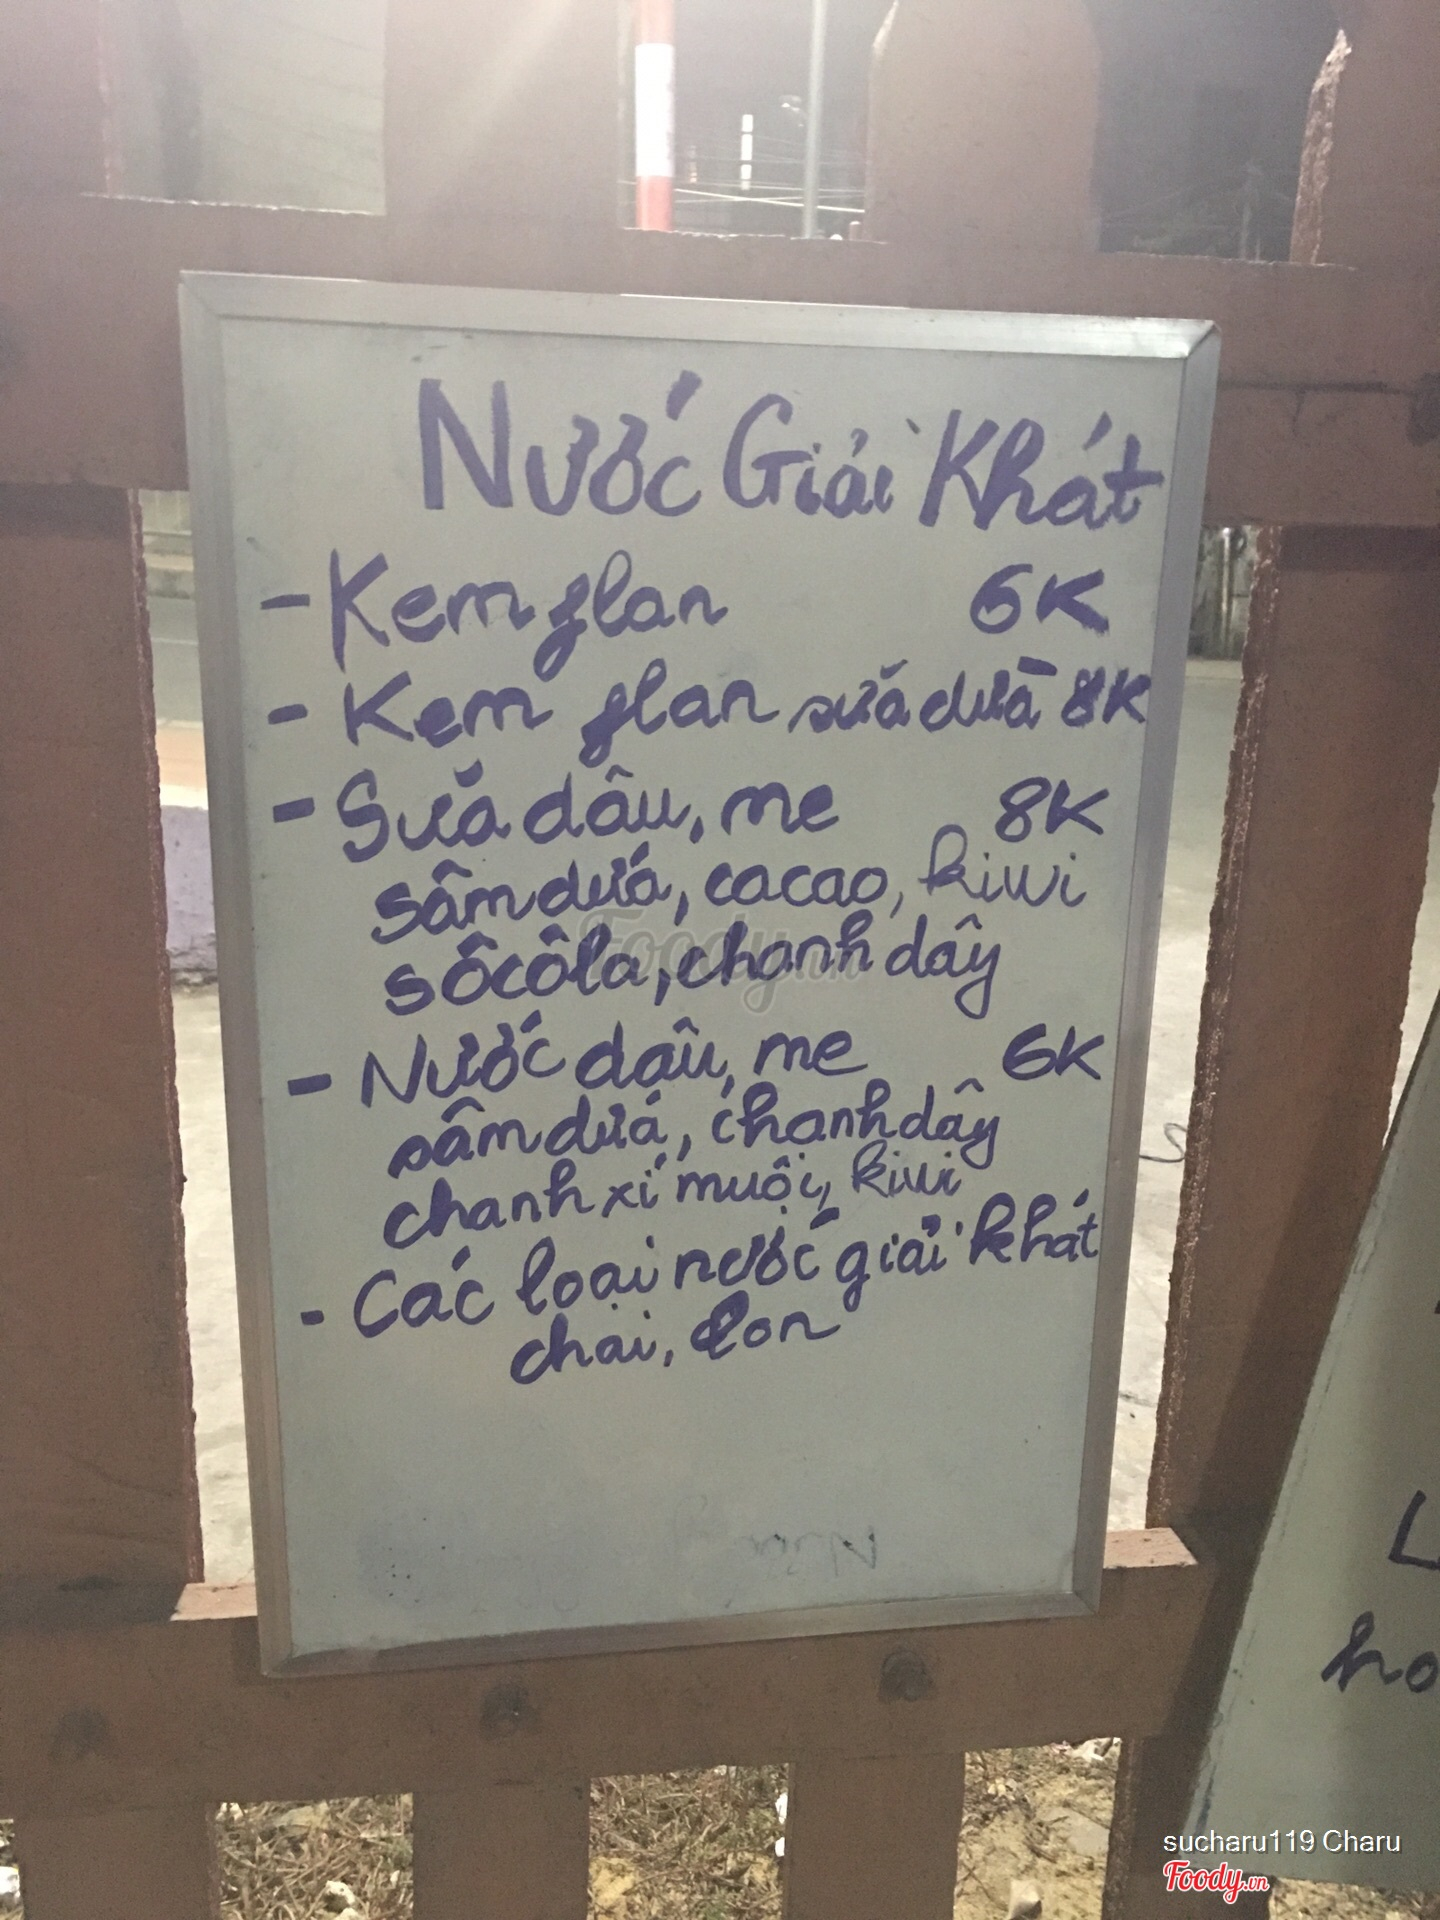 Nước Giải Khát
- Kem flan 6K
- Kem flan sữa dừa 8K
- Sữa dâu, me 8K
sâm dứa, cacao, kiwi
sôcôla, chanh dây
- Nước dâu, me 6K
sâm dứa, chanh dây
chanh xí muội, kiwi
- Các loại nước giải khát
chai, lon
Foody.vn
L
ho
sucharu119 Charu
Foody.vn